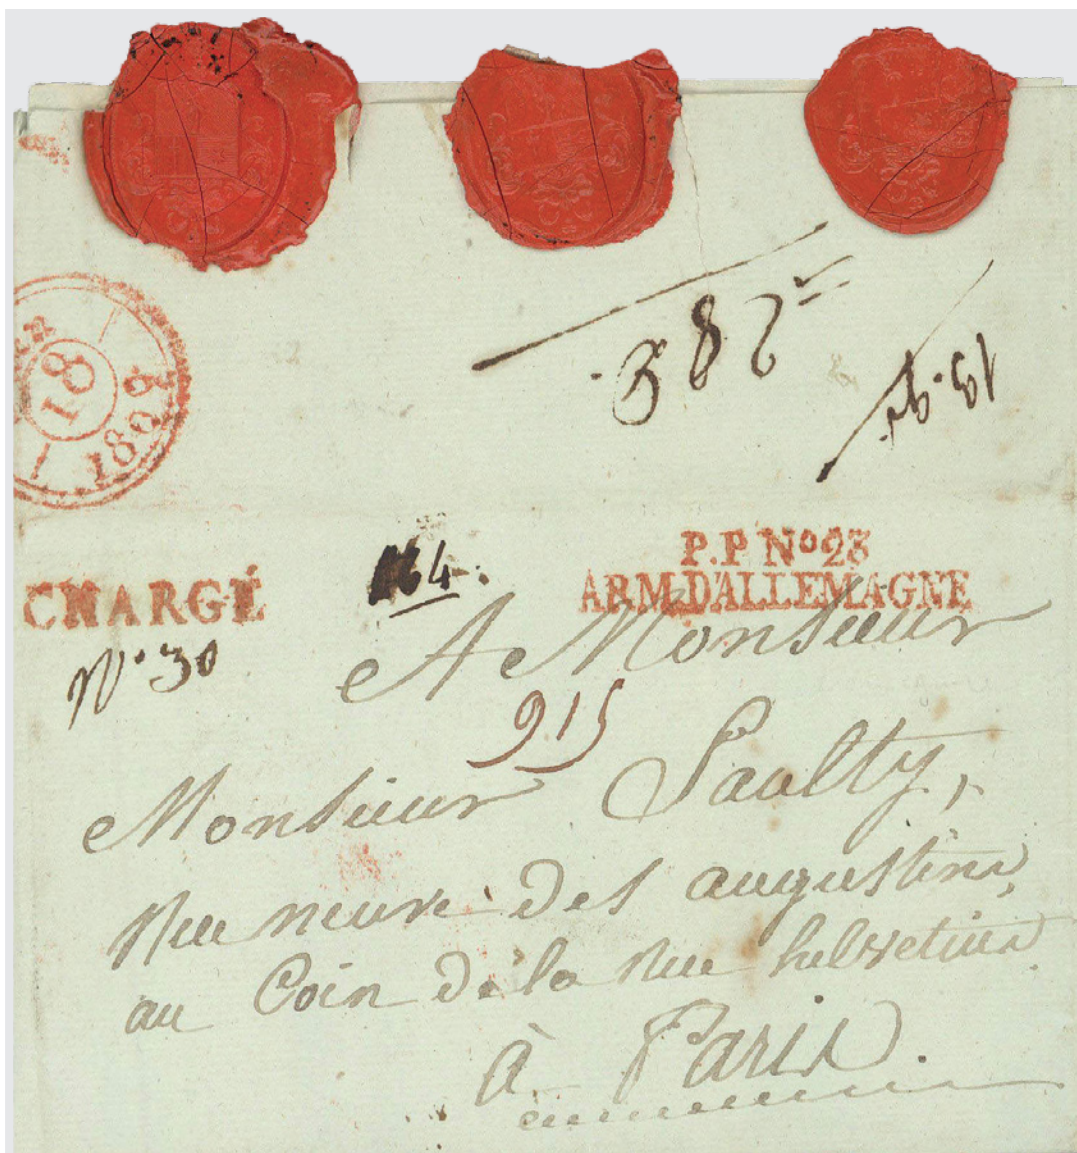 18
1808
CHARGÉ
P.P Nº 23
ARM.D'ALLEMAGNE
Nº 30
64.
A Monsieur
915
Monsieur Saulty,
Rue neuve des augustins,
au Coin de la Rue helvetius
à Paris.